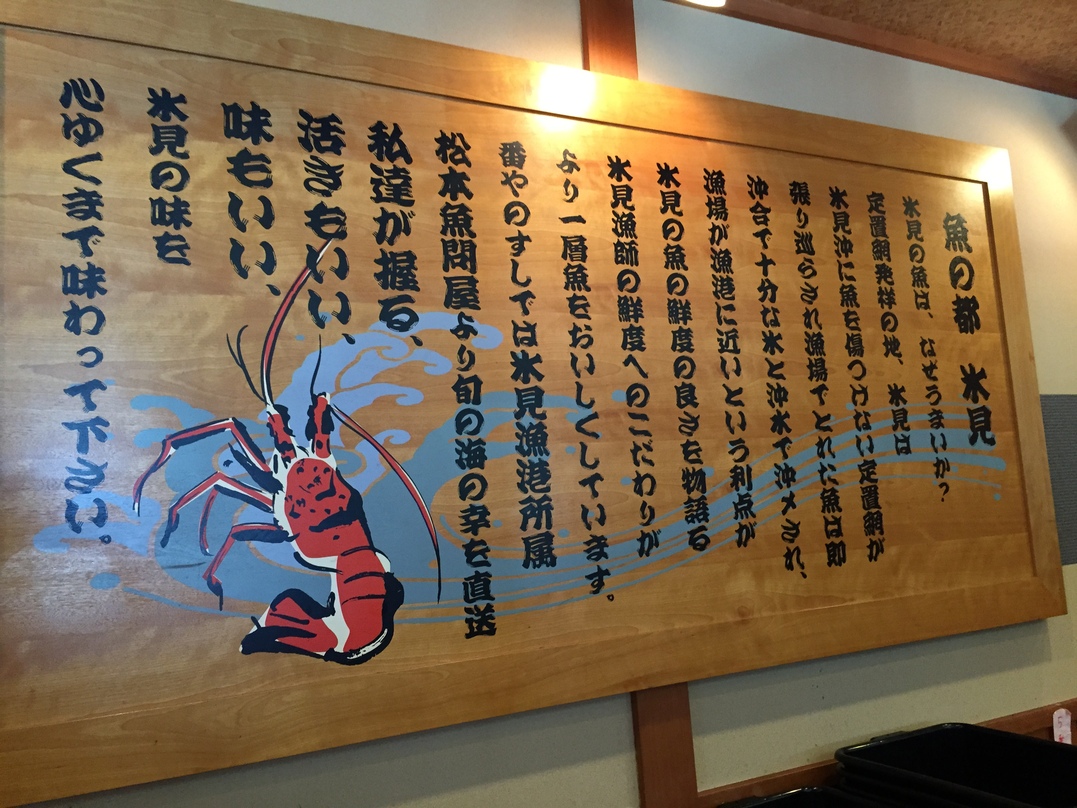 魚の都 氷見
氷見の魚は、なぜうまいか?
定置網発祥の地、氷見は
氷見沖に魚を傷つけない定置網が
張り巡らされ漁場でとれた魚は即
沖合で十分な氷と沖水で沖〆され、
漁場が漁港に近いという利点が
氷見の魚の鮮度の良さを物語る
氷見漁師の鮮度へのこだわりが
より一層魚をおいしくしています。
番やのすしでは氷見漁港所属
松本魚問屋より旬の海の幸を直送
私達が握る、
活きもいい、
味もいい、
氷見の味を
心ゆくまで味わって下さい。